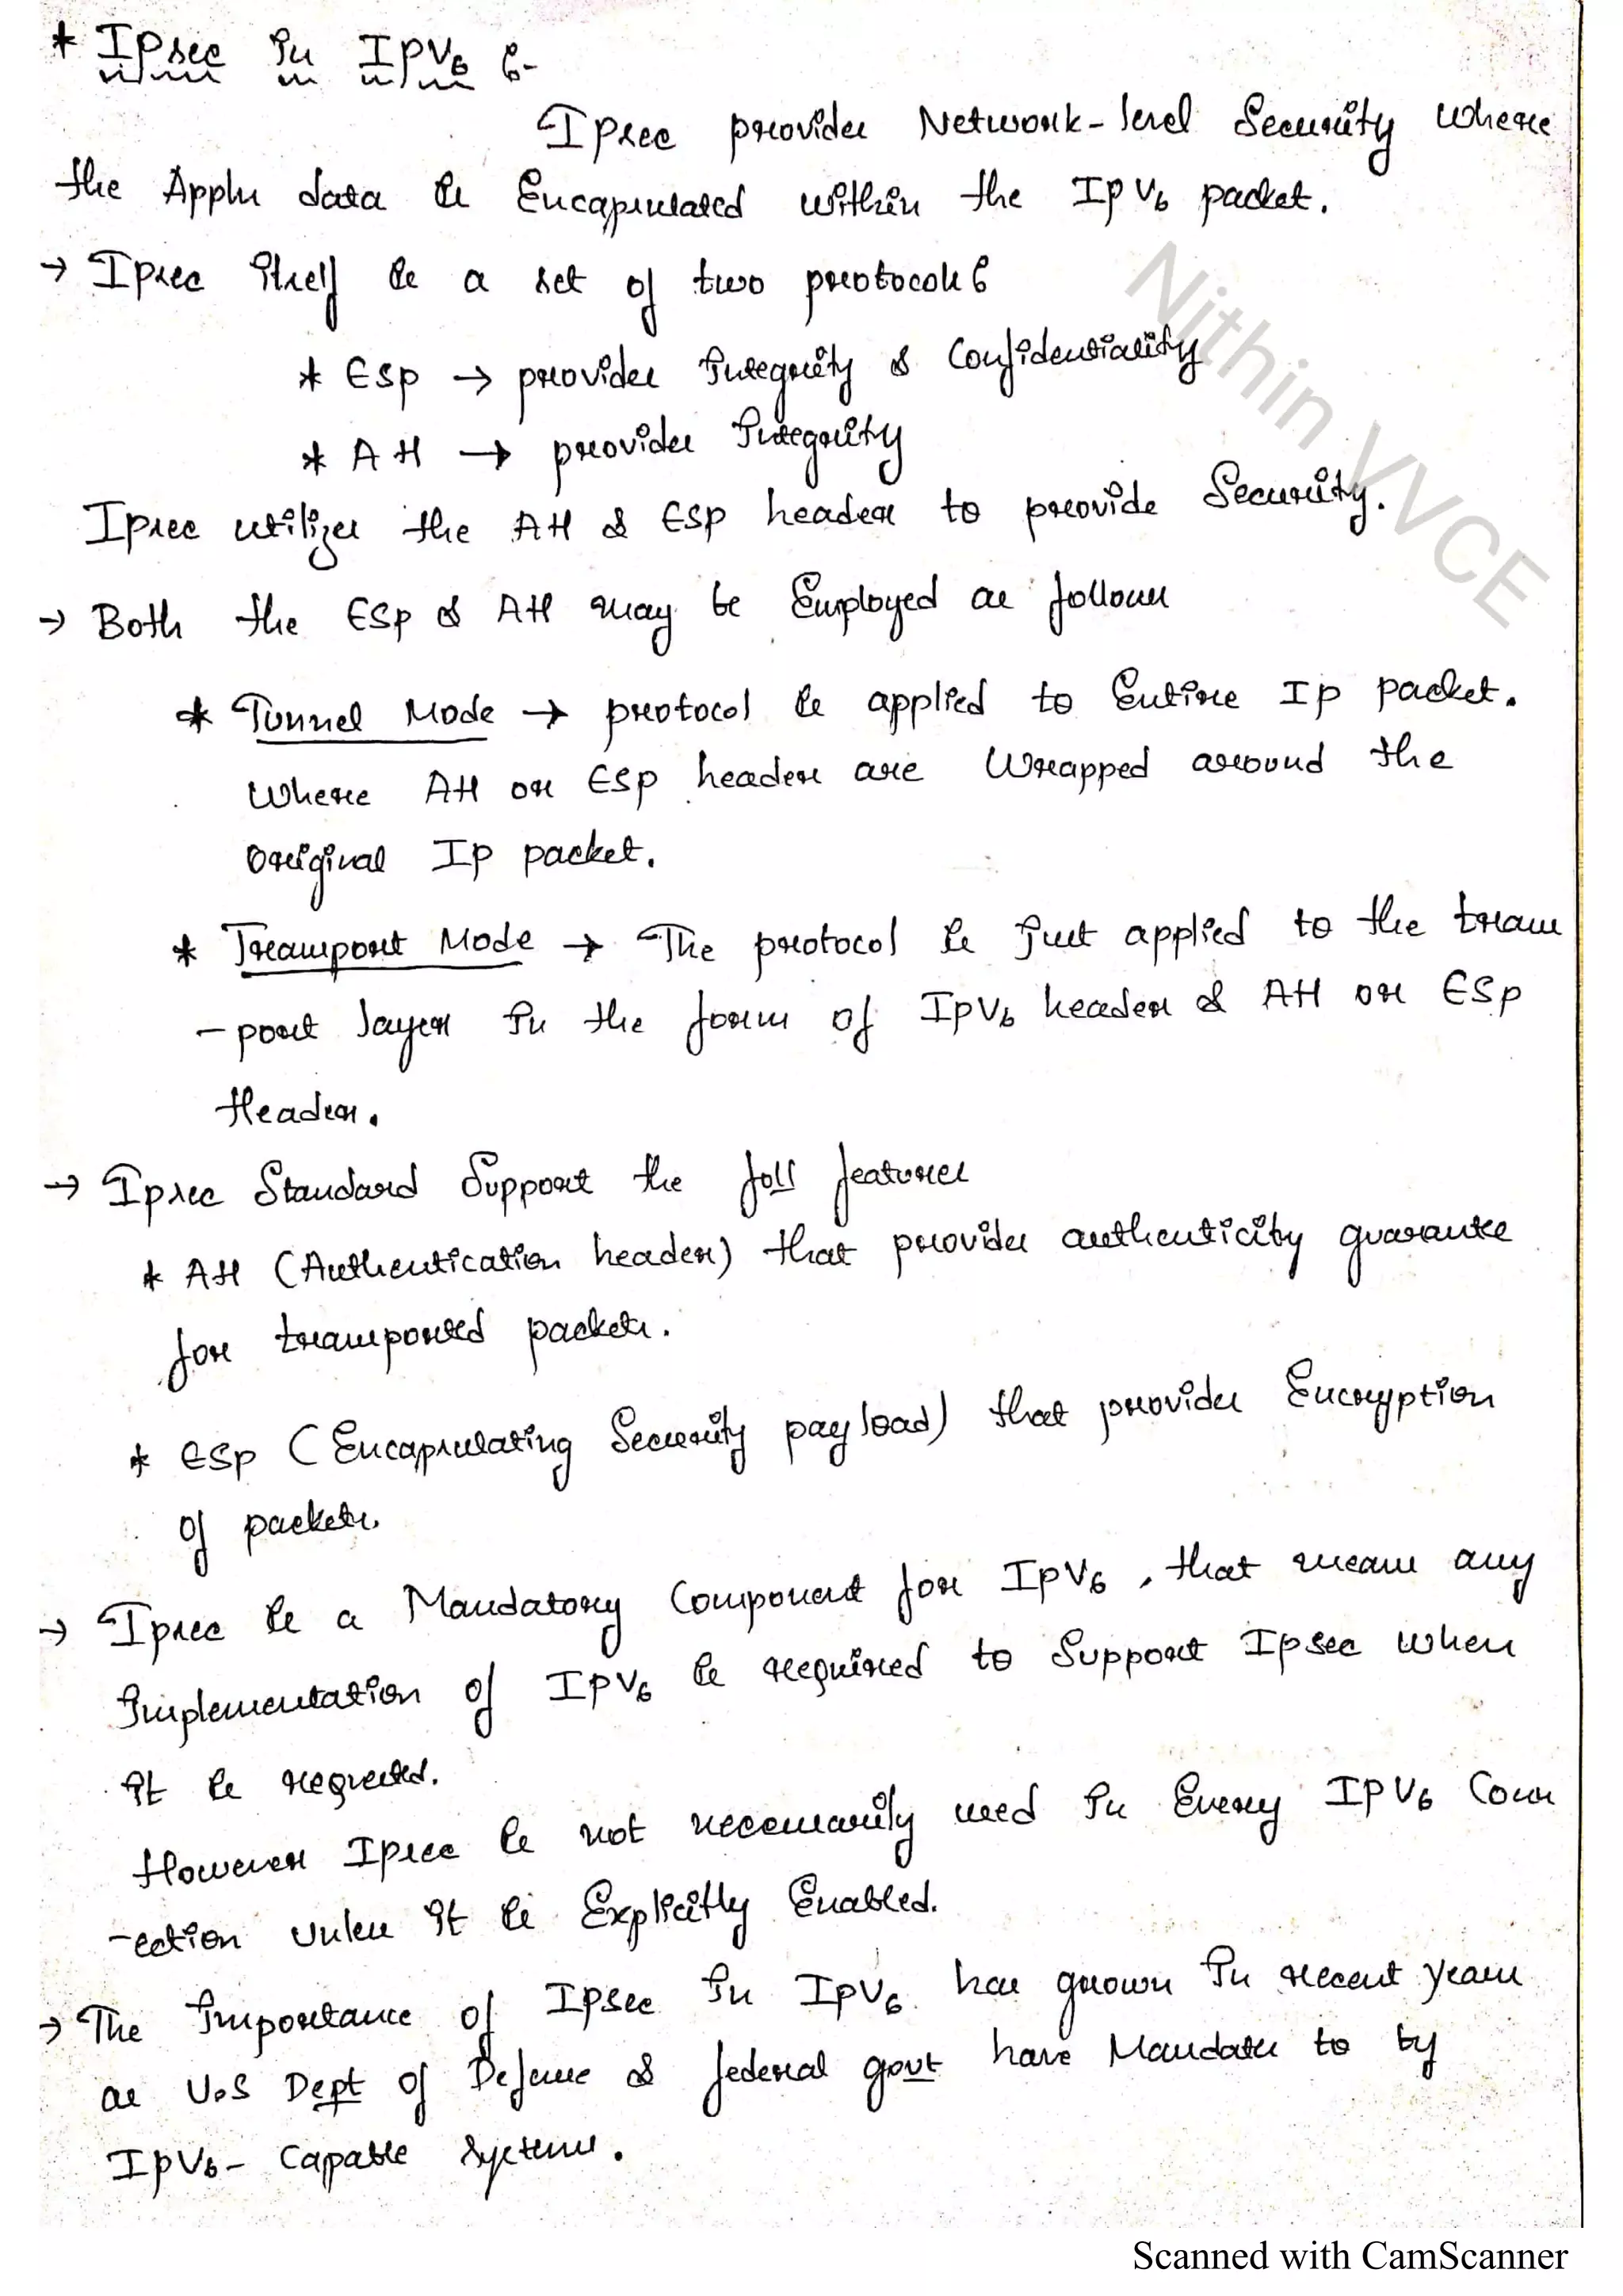 * IPsec in IPV6 :-
IPsec provides Network-level Security where
the Appln data is Encapsulated within the IPV6 packet.
→ IPsec itself is a set of two protocols:
* ESP → provides Integrity & Confidentiality
* AH → provides Integrity
IPsec utilizes the AH & ESP header to provide Security.
→ Both the ESP & AH may be Employed as follows
* Tunnel Mode → protocol is applied to Entire IP packet.
Where AH or ESP header are Wrapped around the
Original IP packet.
* Transport Mode → The protocol is just applied to the trans
-port layer in the form of IPV6 header & AH or ESP
Header.
→ IPsec Standard Support the foll features
* AH (Authentication header) that provides authenticity guarantee
for transported packets.
* ESP (Encapsulating Security payload) that provides Encryption
of packets.
→ IPsec is a Mandatory Component for IPV6, that means any
Implementation of IPV6 is required to Support IPsec when
it is requested.
However IPsec is not necessarily used in Every IPV6 Conn
-ection unless it is Explicitly Enabled.
→ The Importance of IPsec in IPV6 has grown in recent years
as U.S Dept of Defense & federal govt have Mandates to by
IPV6- Capable Systems.
Nithin VVCE
Scanned with CamScanner